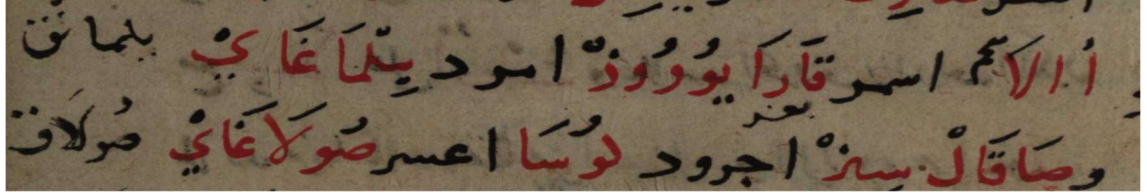 أالا اسمر قَارَا يوُرُوذْ امرد يِتْلمَا غَايْ بلمانق
وصَاقَالْ سِزْ اجرود لوُسَا اعسر صُولَاغَايْ صُولاق